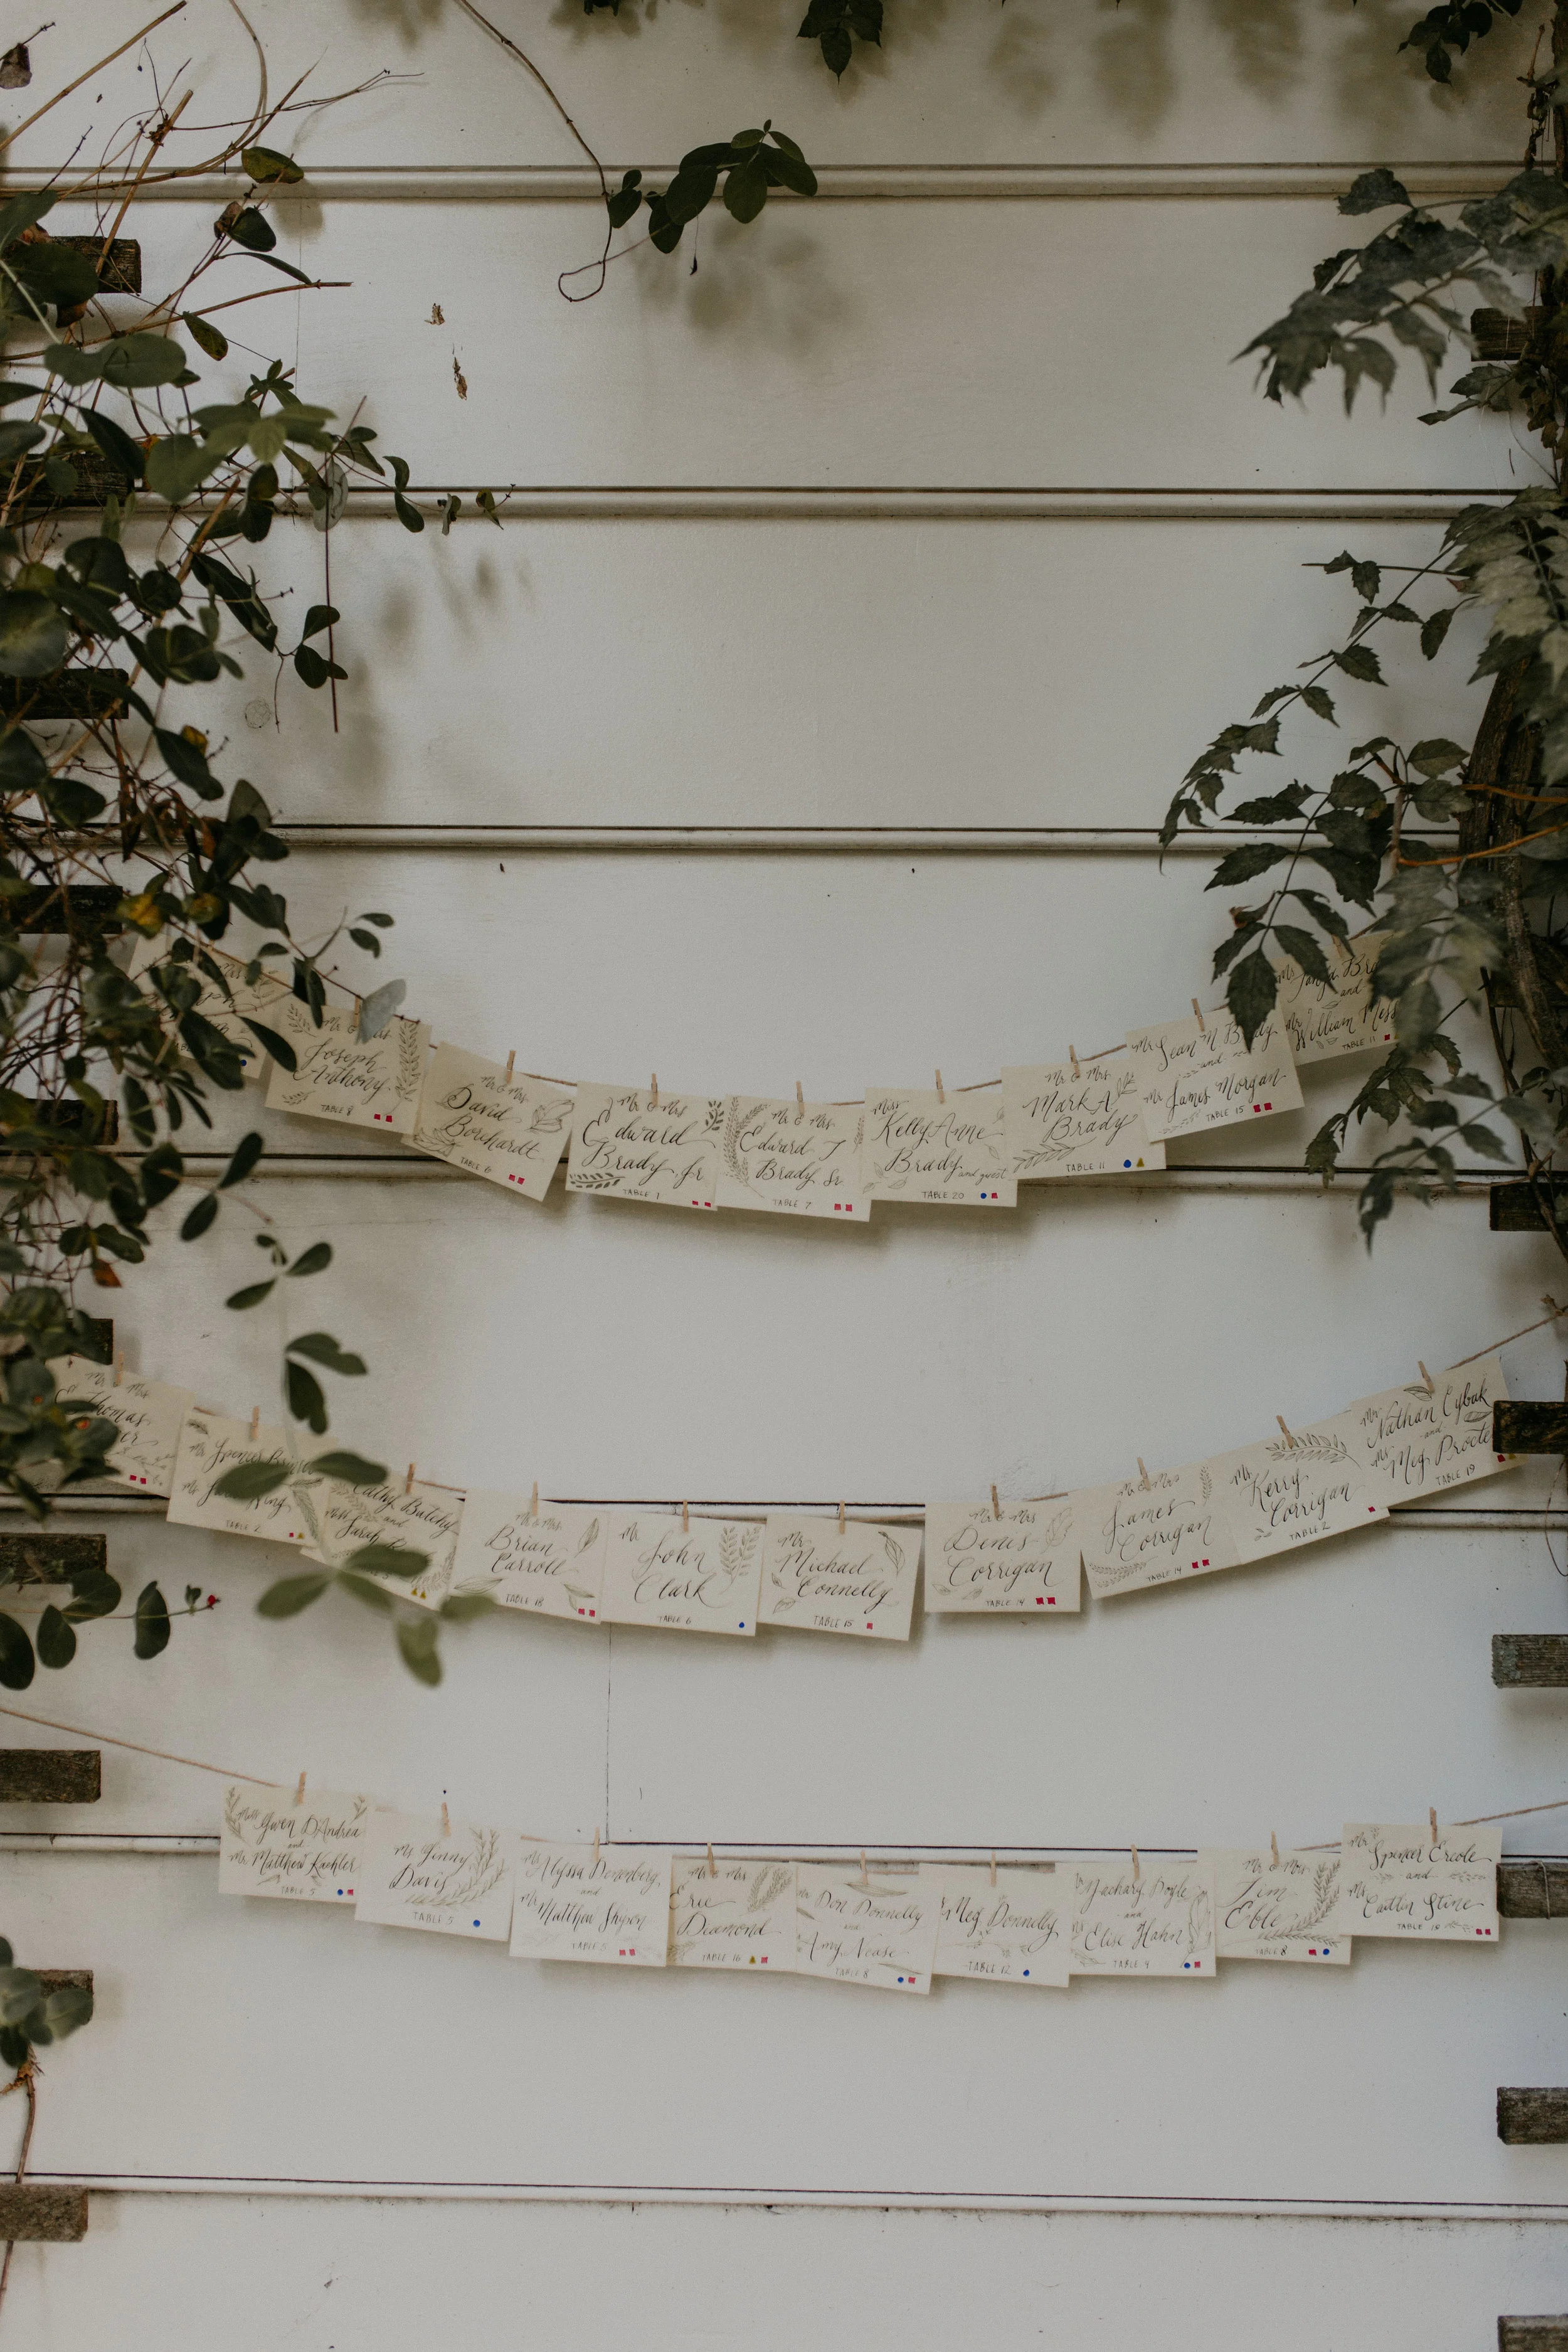 Mr & Mrs
Joseph
Anthony
TABLE 8
Mr & Mrs
David
Borchardt
TABLE 6
Mr & Mrs
Edward
Brady Jr
TABLE 1
Mr & Mrs
Edward J
Brady Sr
TABLE 7
Miss
Kelly Anne
Brady and guest
TABLE 20
Mr & Mrs
Mark A
Brady
TABLE 11
Sean M Brady
and
Mr James Morgan
TABLE 15
and
Mr William
TABLE 11
Mr & Mrs
Thomas
Spencer
TABLE 2
Cathy
and
Sarah
Mr & Mrs
Brian
Carroll
TABLE 18
Mr
John
Clark
TABLE 6
Mr
Michael
Connelly
TABLE 15
Mr & Mrs
Denis
Corrigan
TABLE 14
Mr & Mrs
James
Corrigan
TABLE 14
Kerry
Corrigan
TABLE 2
Mr Nathan Cybak
and
Meg
TABLE 19
Gwen D'Andrea
and
Mr Matthew
TABLE 5
Ms Jenny
Davis
TABLE 5
Alyssa
and
Mr Matthew
TABLE 5
Mr & Mrs
Eric
Diamond
TABLE 16
Don Donnelly
and
Amy
TABLE 8
Meg Donnelly
TABLE 12
Zachary Doyle
and
Elise Hahn
TABLE 4
Mr & Mrs
Eble
TABLE 8
Mr Spencer Ercole
and
Caitlin Stine